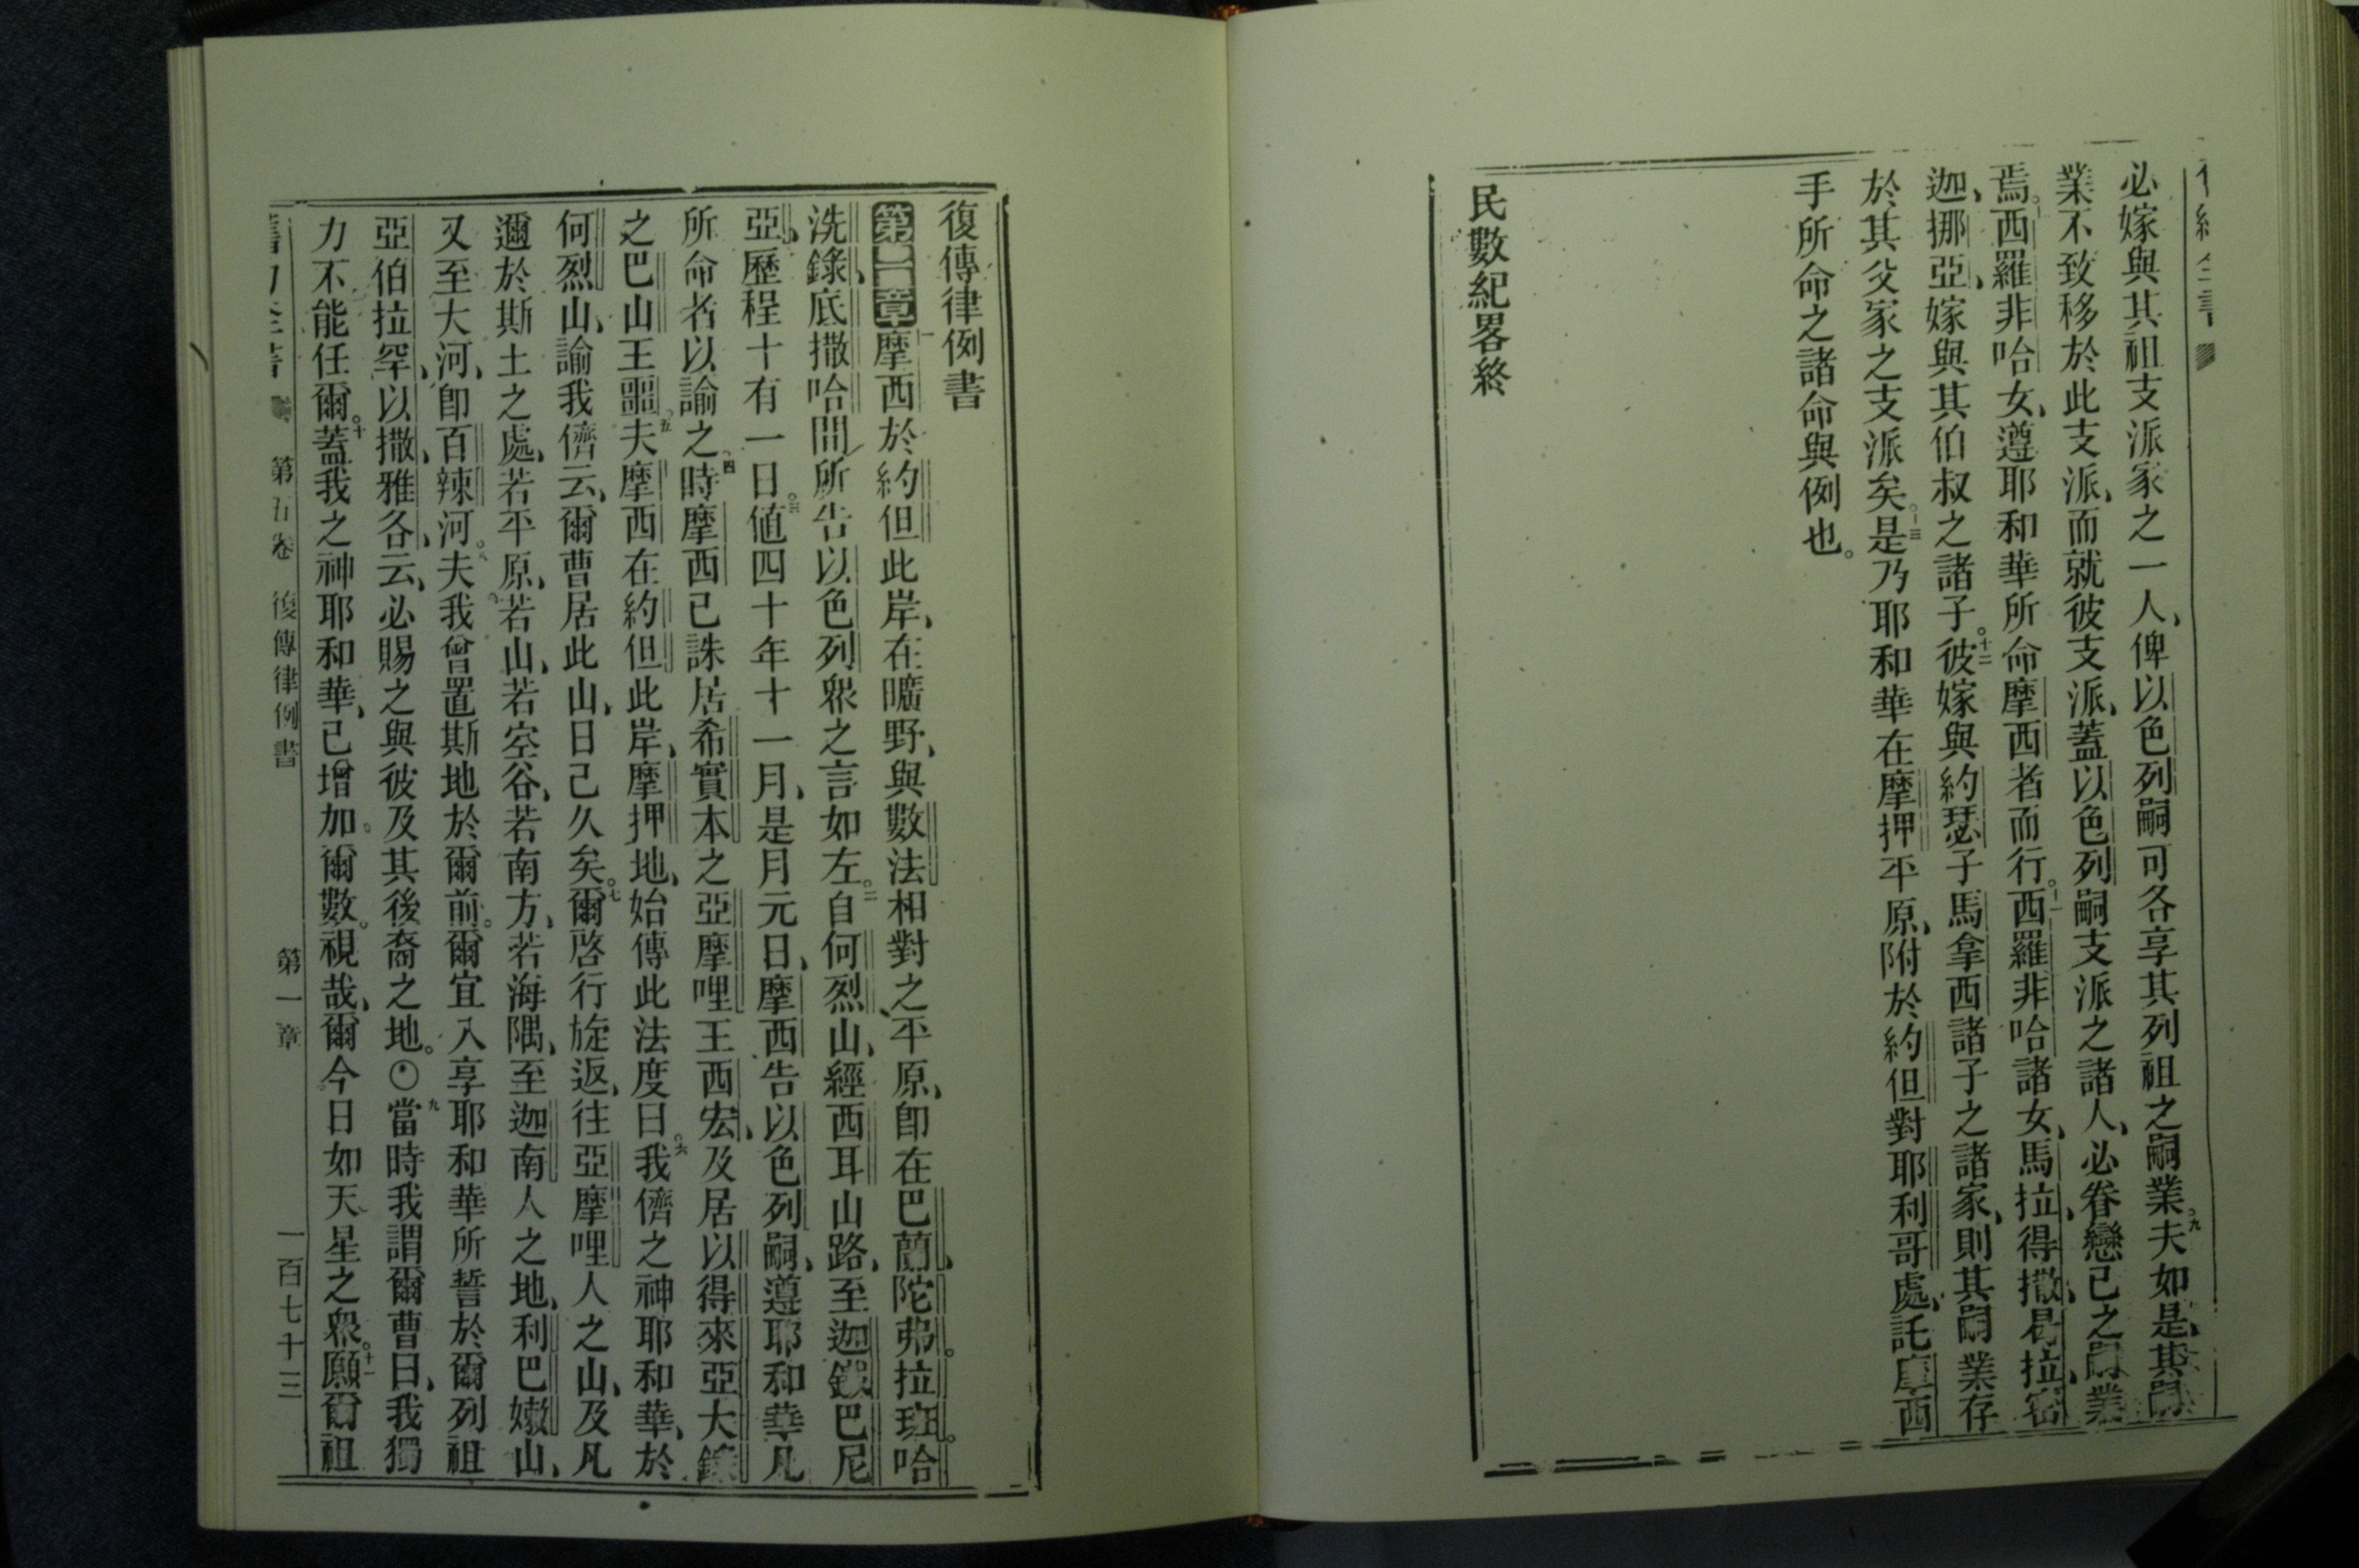 必嫁與其祖支派家之一人、俾以色列嗣可各享其列祖之嗣業。九夫如是、其嗣
業不致移於此支派、而就彼支派、蓋以色列嗣支派之諸人、必眷戀己之嗣業
焉。十西羅非哈女、遵耶和華所命摩西者而行。十一西羅非哈諸女、馬拉、得撒、曷拉、密
迦、挪亞、嫁與其伯叔之諸子。十二彼嫁與約瑟子馬拿西諸子之諸家、則其嗣業存
於其父家之支派矣。十三是乃耶和華在摩押平原、附於約但對耶利哥處、託摩西
手所命之諸命與例也。
民數紀畧終
復傳律例書
第一章一摩西於約但此岸、在曠野、與數法相對之平原、卽在巴蘭、陀弗。拉班。哈
洗錄、底撒哈間、所告以色列衆之言如左。二自何烈山、經西耳山路、至迦鐵巴尼
亞、歷程十有一日。三値四十年十一月、是月元日、摩西告以色列嗣、遵耶和華凡
所命者以諭之、四時摩西已誅居希實本之亞摩哩王西宏、及居以得來亞大錄
之巴山王噩。五夫摩西在約但此岸、摩押地、始傳此法度曰。六我儕之神耶和華、於
何烈山、諭我儕云、爾曹居此山、日已久矣。七爾啓行旋返、往亞摩哩人之山、及凡
邇於斯土之處、若平原、若山、若空谷、若南方、若海隅、至迦南人之地、利巴嫩山、
又至大河、卽百辣河。八夫我曾置斯地於爾前。爾宜入享耶和華所誓於爾列祖
亞伯拉罕、以撒、雅各、云、必賜之與彼及其後裔之地。⊙九當時我謂爾曹曰、我獨
力不能任爾。十蓋我之神耶和華、已增加爾數。視哉、爾今日如天星之衆。十一願爾祖
第五卷 復傳律例書 第一章 一百七十三